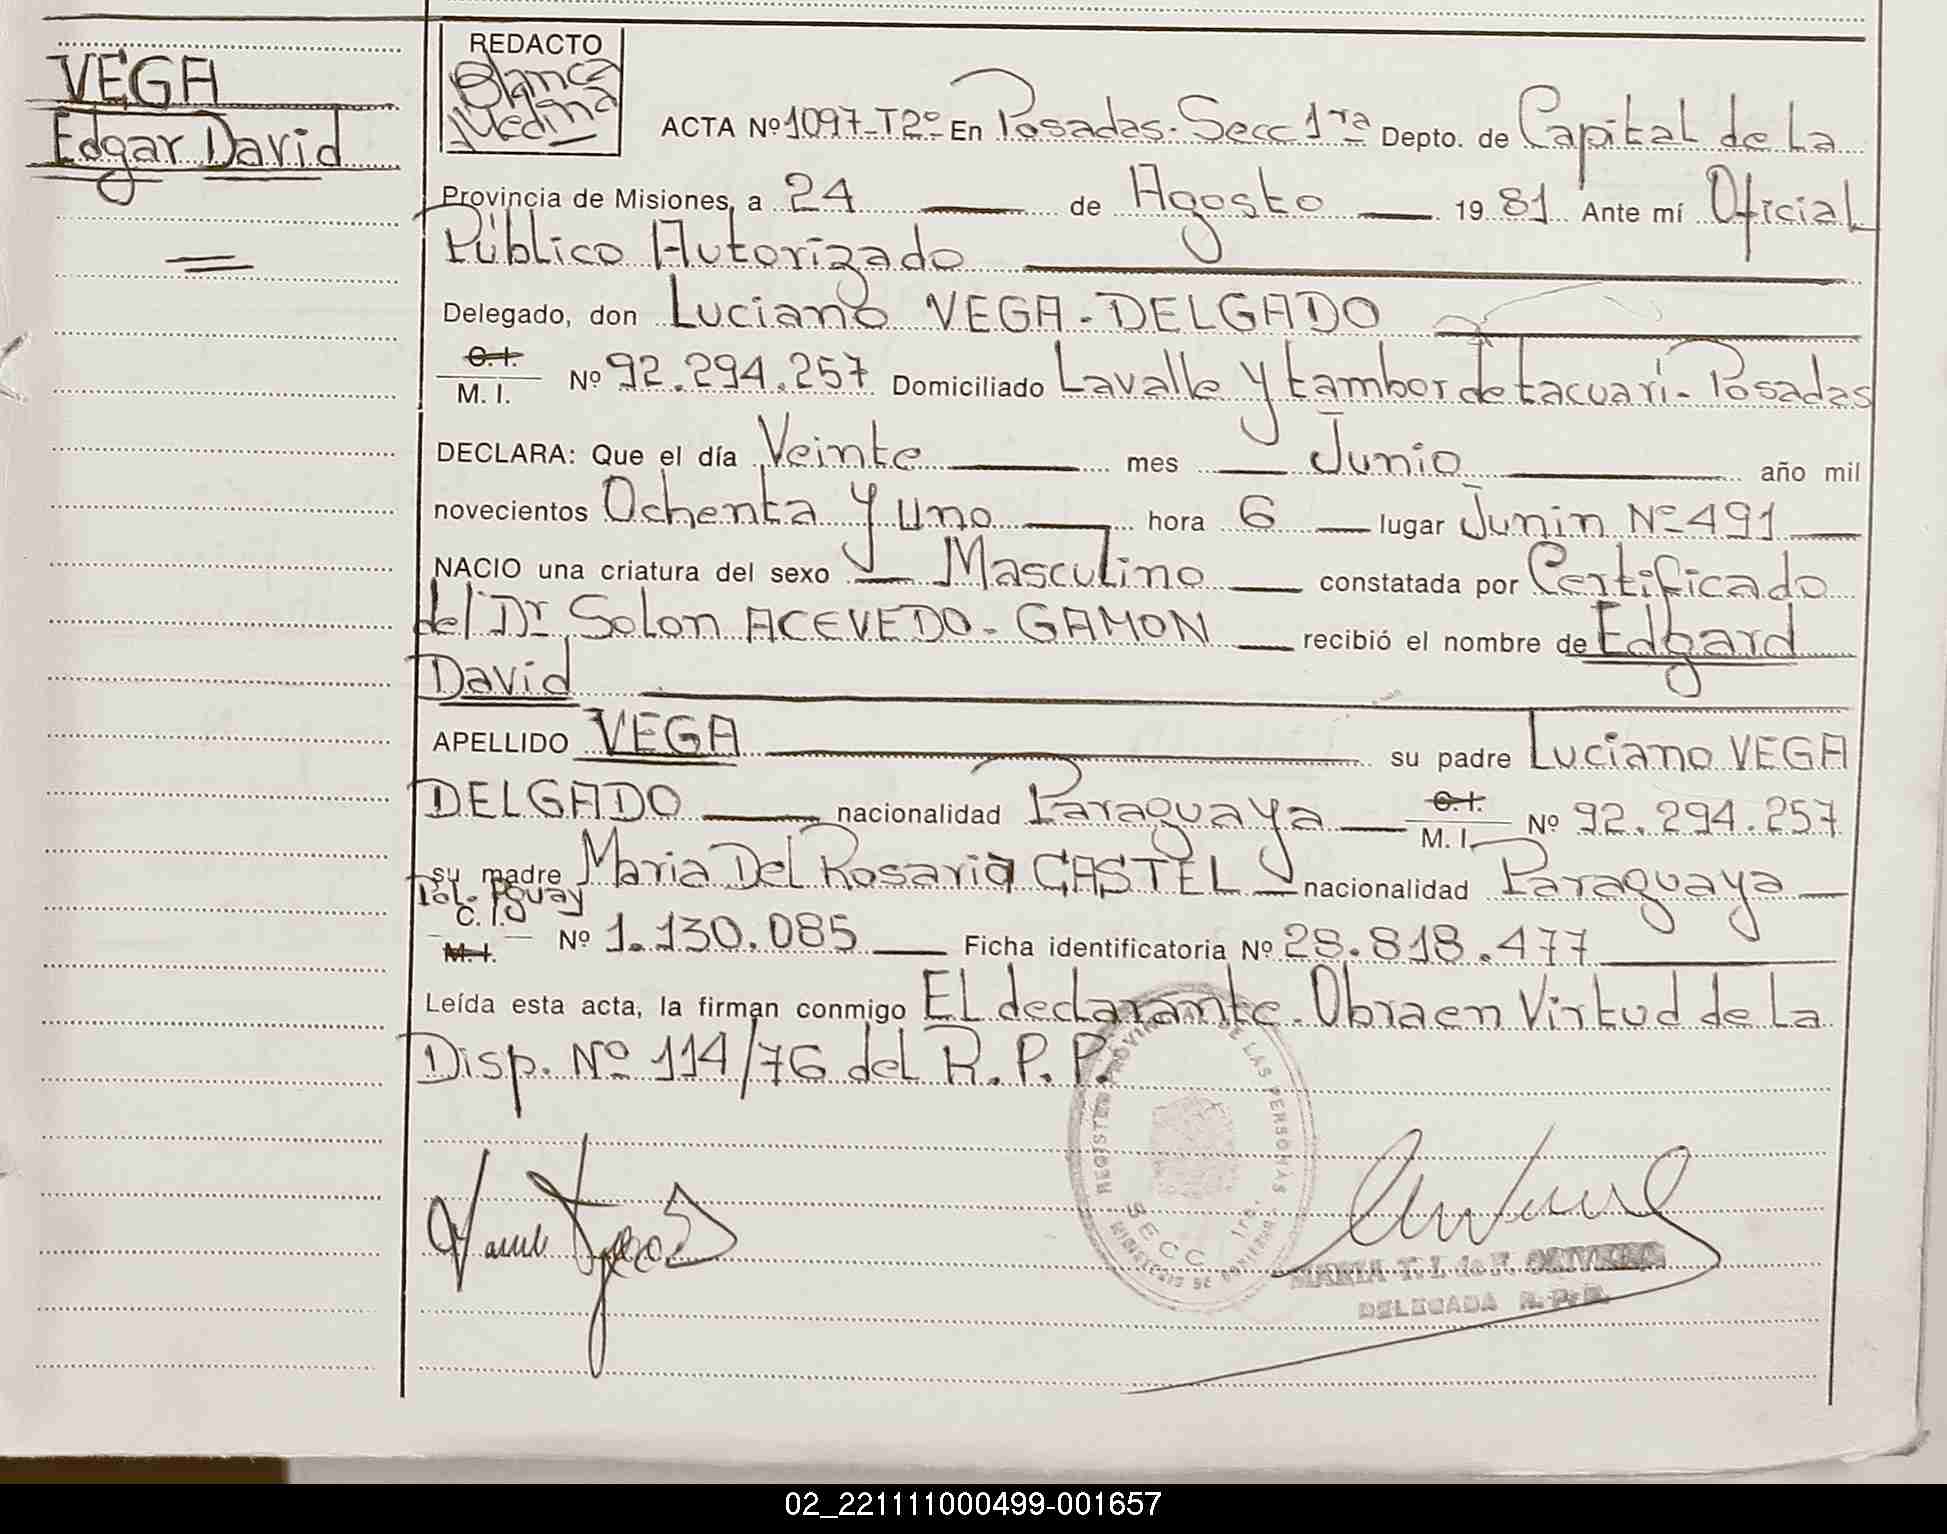 VEGA
Edgar David
REDACTO
Blanca
Medina
ACTA Nº 1097-T2º En Posadas. Secc 1ra Depto. de Capital de La
Provincia de Misiones, a 24 de Agosto 19 81 Ante mí Oficial
Público Autorizado
Delegado, don Luciano VEGA-DELGADO
C.I.
M. I. Nº 92.294.257 Domiciliado Lavalle y tambor de tacuarí- Posadas
DECLARA: Que el día Veinte mes Junio año mil
novecientos Ochenta y uno hora 6 lugar Junin Nº 491
NACIO una criatura del sexo Masculino constatada por Certificado
del Dr. Solon ACEVEDO-GAMON recibió el nombre de Edgard
David
APELLIDO VEGA su padre Luciano VEGA
DELGADO nacionalidad Paraguaya C.I. M. I. Nº 92.294.257
su madre Maria Del Rosario CASTEL nacionalidad Paraguaya
Pol. Pguay
C. I.
M. I. Nº 1.130.085 Ficha identificatoria Nº 28.818.477
Leída esta acta, la firman conmigo EL declarante. Obra en Virtud de La
Disp. Nº 114/76 del R.P.P.
REGISTRO PROVINCIAL DE LAS PERSONAS
SECC. 1ra.
MINISTERIO DE GOBIERNO
MARIA T. I. de F. OLIVERA
DELEGADA R.P.P.
02_221111000499-001657